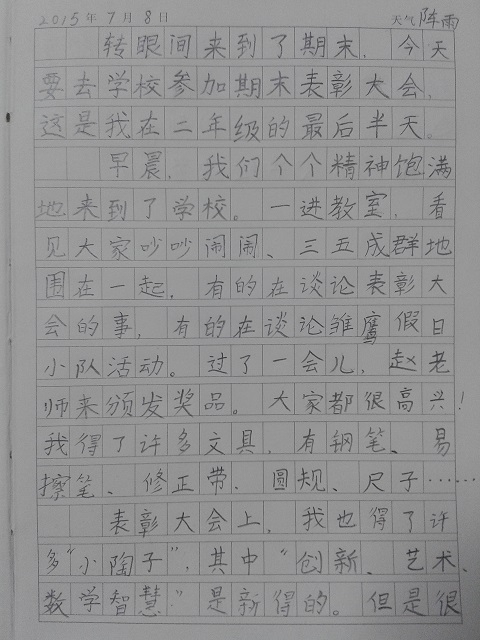 2015年7月8日 天气阵雨
转眼间来到了期末，今天
要去学校参加期末表彰大会，
这是我在二年级的最后半天。
早晨，我们个个精神饱满
地来到了学校。一进教室，看
见大家吵吵闹闹、三五成群地
围在一起，有的在谈论表彰大
会的事，有的在谈论雏鹰假日
小队活动。过了一会儿，赵老
师来颁发奖品。大家都很高兴！
我得了许多文具，有钢笔、易
擦笔、修正带、圆规、尺子……
表彰大会上，我也得了许
多“小陶子”，其中“创新、艺术、
数学智慧”是新得的。但是很